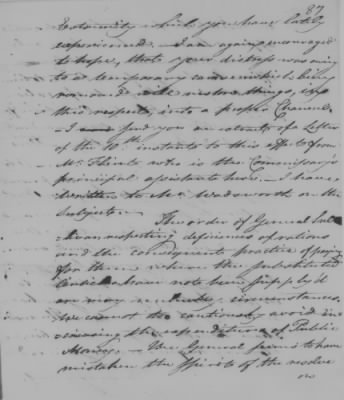 87
Extremity which you have lately
experienced. — I am again encouraged
to hope, that your distress was owing
to a temporary cause which being
removed will restore things, in
this respect, into a proper Channel.
— I send you an extract of a Letter
of the 10th instant to this effect from
Mr. Flint who is the Commissary's
principal assistant here. — I have
written to Mr. Wadsworth on the
Subject. —
The order of General Sul-
-livan respecting deficiencies of rations
and the consequent practice of paying
for them where the substituted
Articles have not been supply'd
are may in
circumstances.
We cannot be too cautiously avoid in-
-creasing the expenditure of Public
Money. — The General seems to have
mistaken the spirit of the resolve